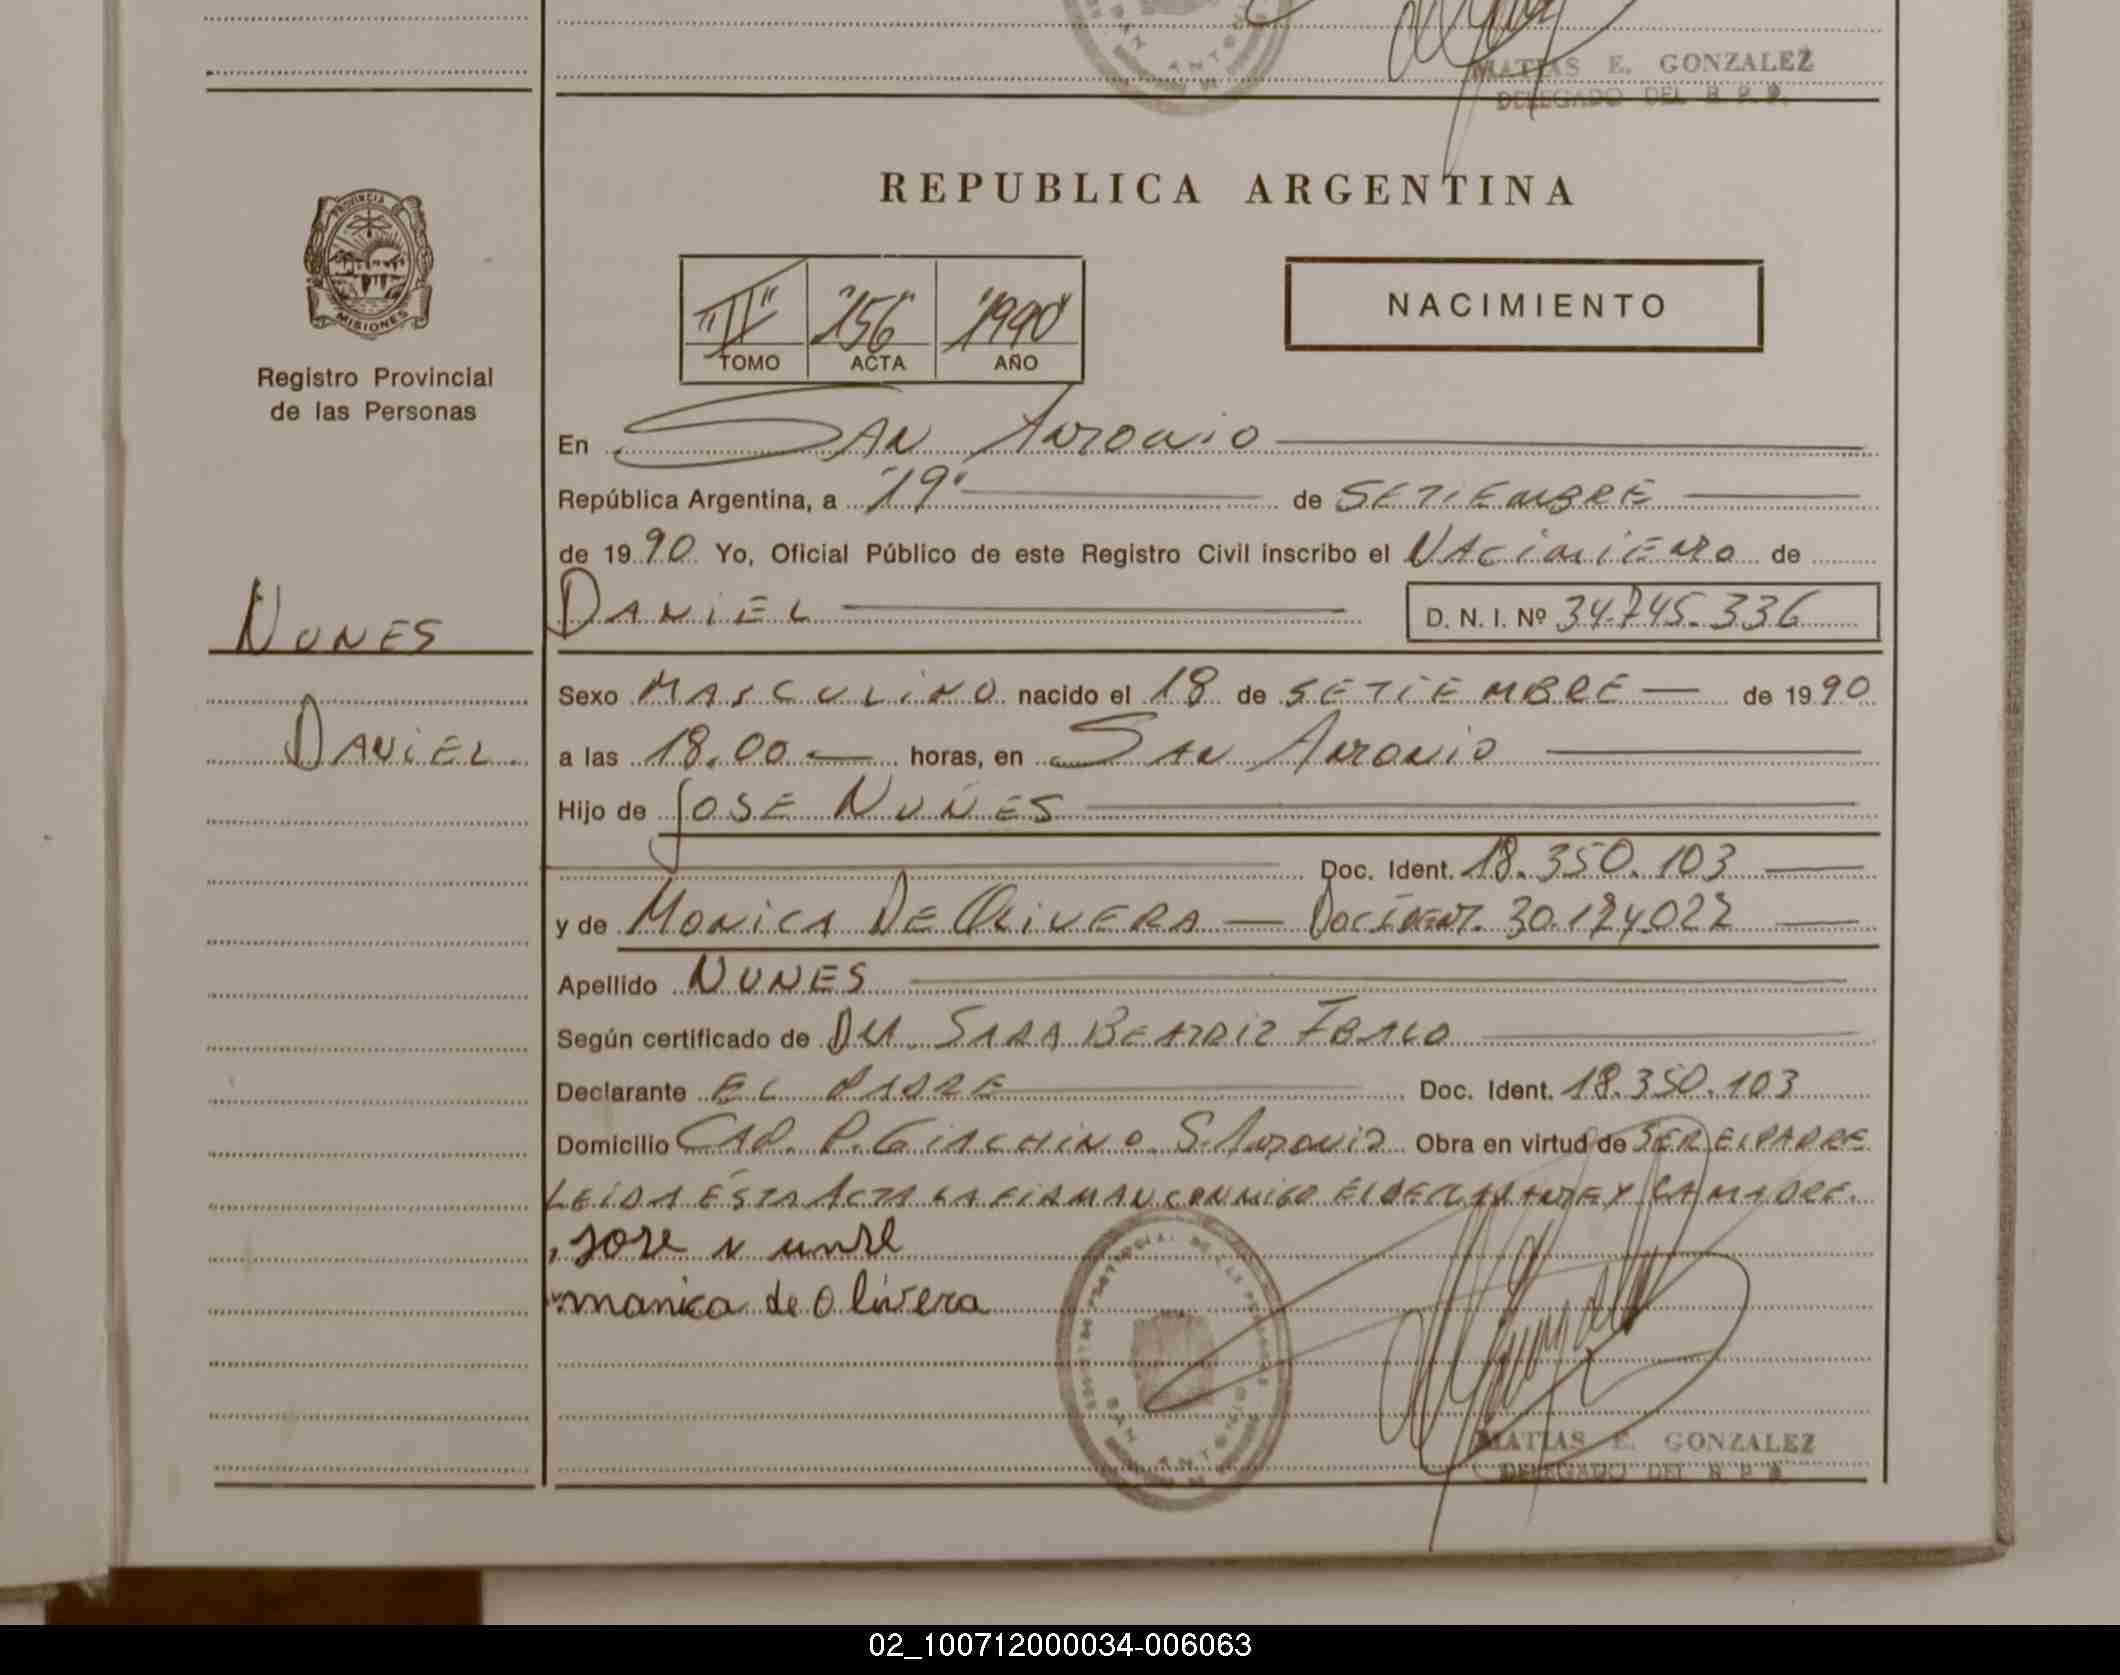 MATIAS E. GONZALEZ
DELEGADO DEL R. P. P.
REPUBLICA ARGENTINA
PROVINCIA DE
MISIONES
Registro Provincial
de las Personas
"III" "156" "1990"
TOMO ACTA AÑO
NACIMIENTO
En SAN ANTONIO
República Argentina, a "19" de SETIEMBRE
de 1990 Yo, Oficial Público de este Registro Civil inscribo el NACIMIENTO de
NUNES
DANIEL
DANIEL D. N. I. Nº 34.745.336
Sexo MASCULINO nacido el 18 de SETIEMBRE de 1990
a las 18.00 horas, en SAN ANTONIO
Hijo de JOSE NUNES
Doc. Ident. 18.350.103
y de MONICA DE OLIVERA — DOC. IDENT. 30.124.022
Apellido NUNES
Según certificado de SARA BEATRIZ
Declarante EL PADRE Doc. Ident. 18.350.103
Domicilio CAP. P. GIACHINO S. ANTONIO Obra en virtud de SER EL PADRE
LEIDA ESTA ACTA LA FIRMAN CONMIGO EL DECLARANTE Y LA MADRE.
jose nunsl
manica de Olivera
SAN ANTONIO
MATIAS E. GONZALEZ
DELEGADO DEL R. P. P.
02_100712000034-006063